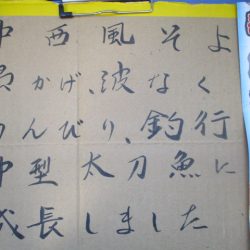 西風そよ
かげ、波なく
のんびり、釣行
中型太刀魚に
成長しました